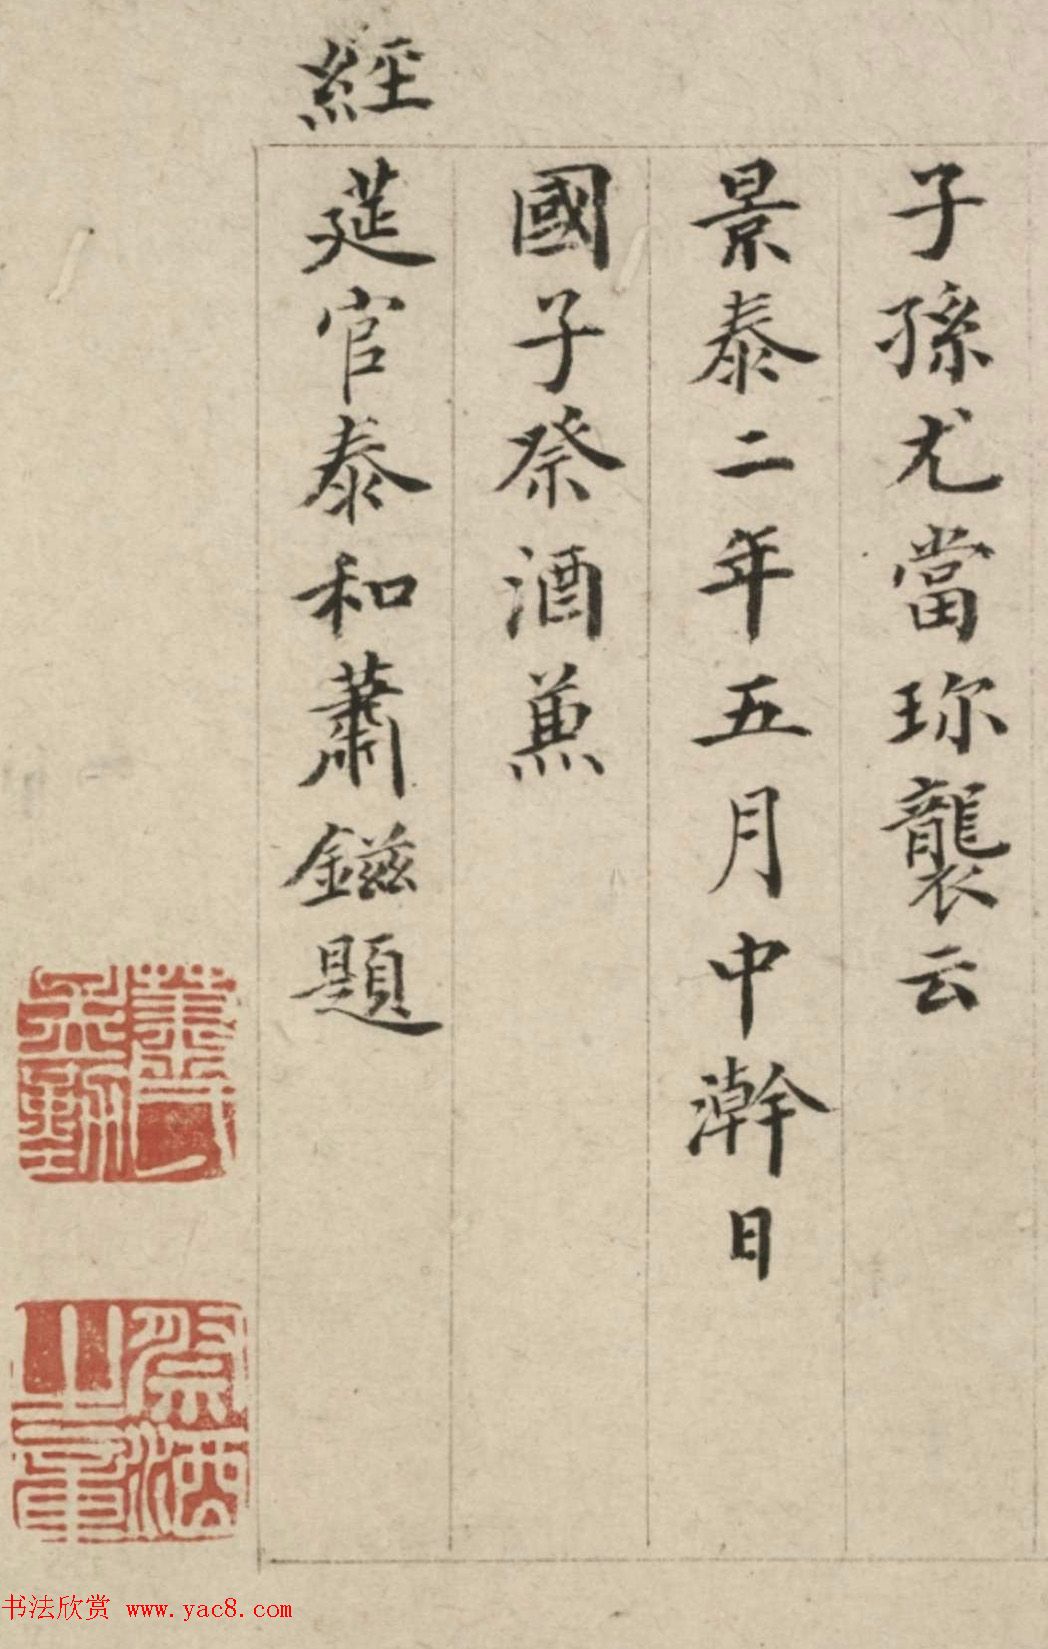 子孫尤當珎襲云
景泰二年五月中澣日
國子祭酒兼
經筵官泰和蕭鎡題
蕭氏孟勤
祭酒之章
书法欣赏 www.yac8.com